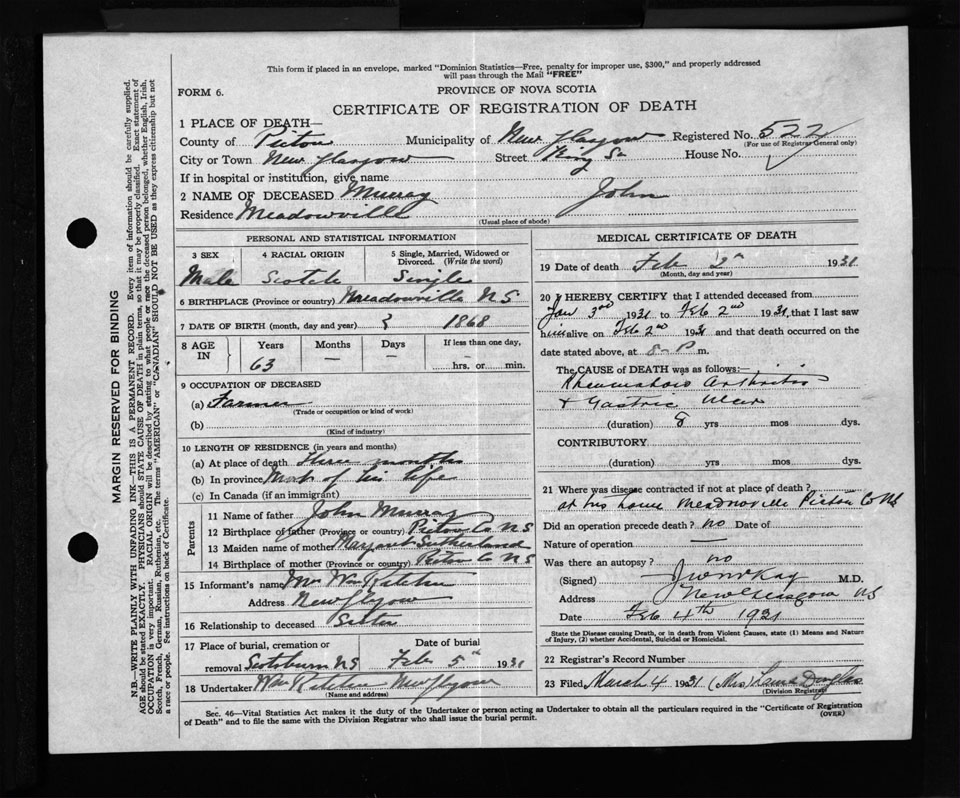 This form if placed in an envelope, marked "Dominion Statistics—Free, penalty for improper use, $300," and properly addressed
will pass through the Mail "FREE"
FORM 6.
PROVINCE OF NOVA SCOTIA
CERTIFICATE OF REGISTRATION OF DEATH
1 PLACE OF DEATH—
County of Pictou Municipality of New Glasgow Registered No. 522
(For use of Registrar General only)
City or Town New Glasgow Street King St House No.
If in hospital or institution, give name
2 NAME OF DECEASED Murray John
Residence Meadowville
(Usual place of abode)
PERSONAL AND STATISTICAL INFORMATION
3 SEX 4 RACIAL ORIGIN 5 Single, Married, Widowed or Divorced. (Write the word)
Male Scotch Single
6 BIRTHPLACE (Province or country) Meadowville N S
7 DATE OF BIRTH (month, day and year) 1868
8 AGE IN Years Months Days If less than one day,
63 — — hrs. or min.
9 OCCUPATION OF DECEASED
(a) Farmer
(Trade or occupation or kind of work)
(b)
(Kind of industry)
10 LENGTH OF RESIDENCE (in years and months)
(a) At place of death three months
(b) In province Most of his life
(c) In Canada (if an immigrant)
Parents
11 Name of father John Murray
12 Birthplace of father (Province or country) Pictou Co N S
13 Maiden name of mother Margaret Sutherland
14 Birthplace of mother (Province or country) Pictou C N S
15 Informant's name Mrs Wm Ritchie
Address New Glasgow
16 Relationship to deceased Sister
17 Place of burial, cremation or Date of burial
removal Scotsburn N S Feb 5th 1931
18 Undertaker Wm Ritchie New Glasgow
(Name and address)
MEDICAL CERTIFICATE OF DEATH
19 Date of death Feb 2nd 1931
(Month, day and year)
20 I HEREBY CERTIFY that I attended deceased from
Jan 3rd 1931 to Feb 2nd 1931, that I last saw
him alive on Feb 2nd 1931 and that death occurred on the
date stated above, at 8-P m.
The CAUSE OF DEATH was as follows:—
Rheumatoid Arthritis
+ Gastric Ulcer
(duration) 8 yrs mos dys.
CONTRIBUTORY
(duration) yrs mos dys.
21 Where was disease contracted if not at place of death?
at his home Meadowville Pictou Co NS
Did an operation precede death? no Date of
Nature of operation —
Was there an autopsy? no
(Signed) M.D.
Address New Glasgow NS
Date Feb 4th 1931
State the Disease causing Death, or in death from Violent Causes, state (1) Means and Nature
of Injury, (2) whether Accidental, Suicidal or Homicidal.
22 Registrar's Record Number
23 Filed March 4 1931 (Mrs) Douglas
(Division Registrar)
Sec. 46—Vital Statistics Act makes it the duty of the Undertaker or person acting as Undertaker to obtain all the particulars required in the "Certificate of Registration
of Death" and to file the same with the Division Registrar who shall issue the burial permit.
(OVER)
MARGIN RESERVED FOR BINDING
N.B.—WRITE PLAINLY WITH UNFADING INK—THIS IS A PERMANENT RECORD. Every item of information should be carefully supplied.
AGE should be stated EXACTLY. PHYSICIANS should STATE CAUSE OF DEATH in plain terms, so that it may be properly classified. Exact statement of
OCCUPATION is very important. RACIAL ORIGIN will be described by stating to what people or race the deceased person belonged, whether English, Irish,
Scotch, French, German, Russian, Ruthenian, etc. The terms "AMERICAN" or "CANADIAN" SHOULD NOT BE USED as they express citizenship but not
a race or people. See instructions on back of Certificate.